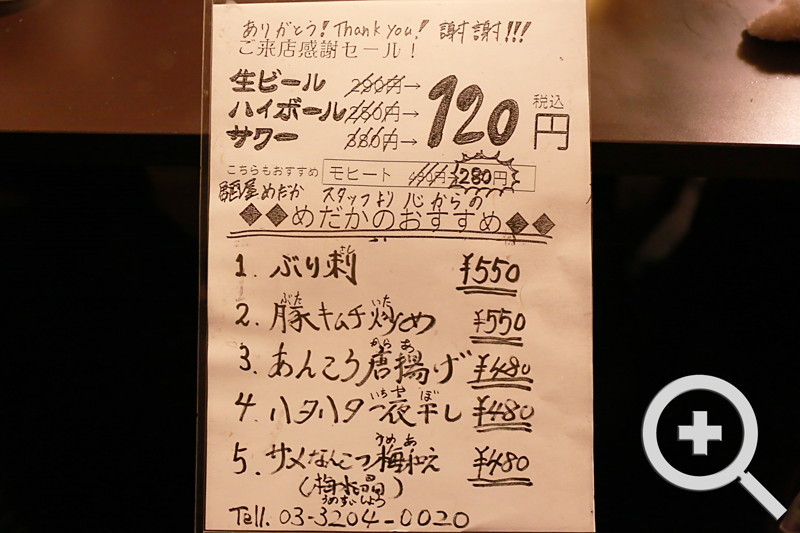 ありがとう! Thank you! 謝謝!!!
ご来店感謝セール!
生ビール 290円→
ハイボール 250円→ 120円 税込
サワー 380円→
こちらもおすすめ モヒート 280円
居酒屋めだか スタッフより 心からの
◆◆めだかのおすすめ◆◆
1. ぶり刺 ¥550
さし
2. 豚キムチ炒め ¥550
ぶた いた
3. あんころ唐揚げ ¥480
から あ
4. ハタハタ一夜干し ¥480
いちや ぼ
5. サメなんこつ梅和え ¥480
うめ あ
(梅水晶)
うめすいしょう
Tell. 03-3204-0020